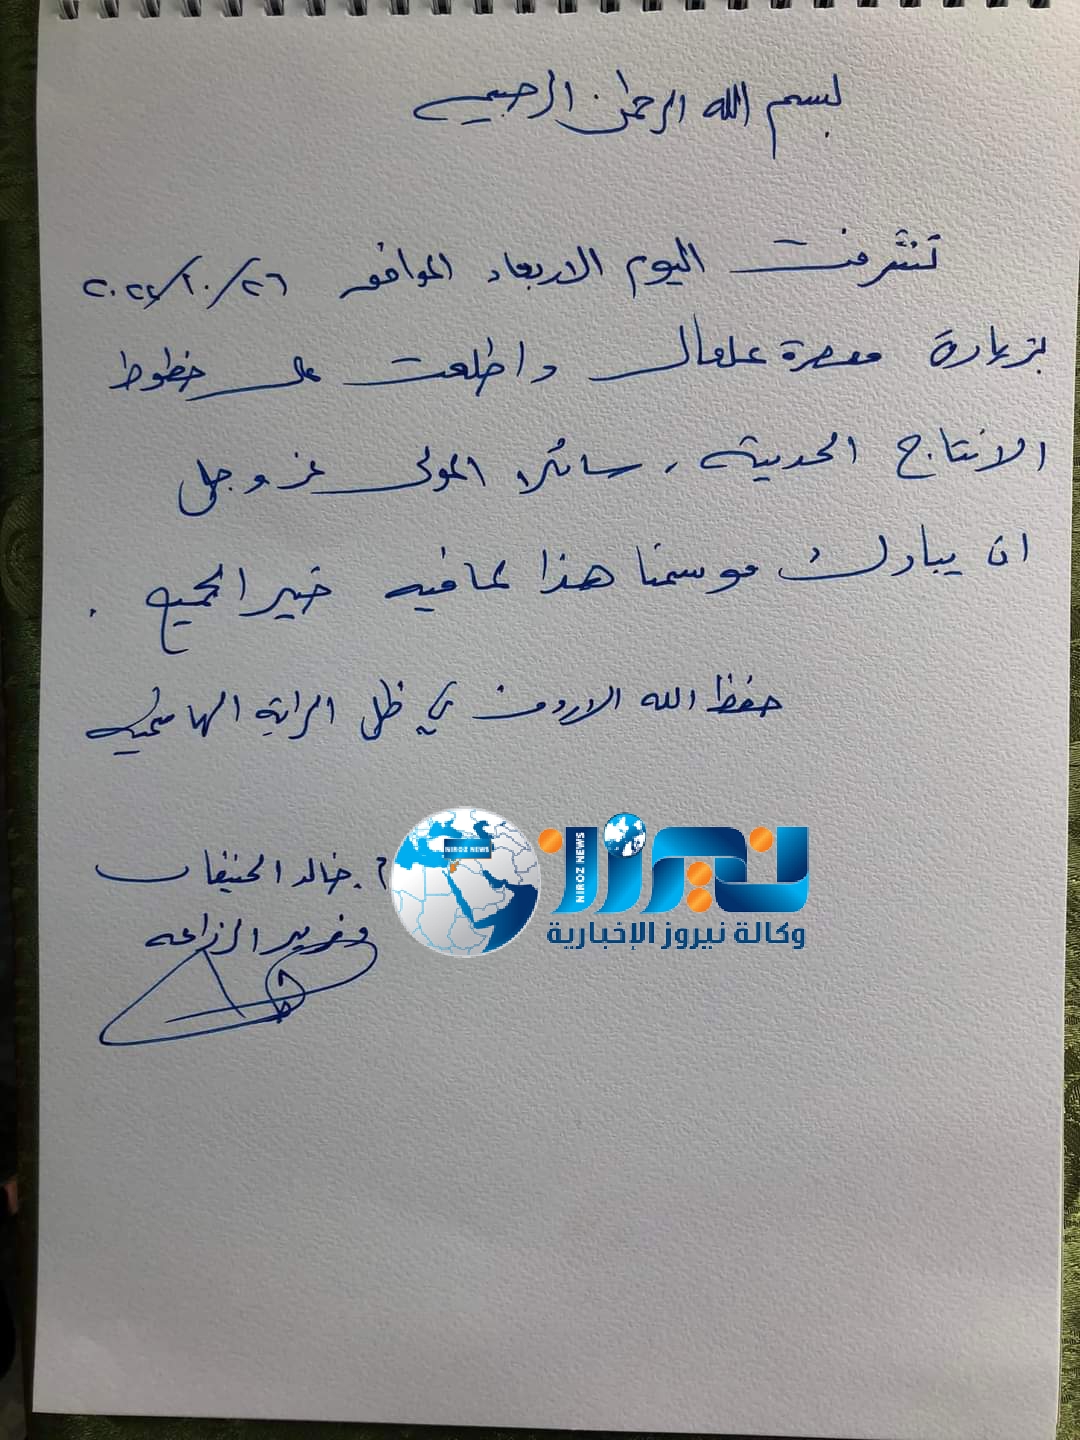 بسم الله الرحمن الرحيم
تشرفت اليوم الاربعاء الموافق ٢٦/١٠/٢٠٢٢
بزيارة معصرة علعال واطلعت على خطوط
الانتاج الحديثة، سائلاً المولى عز وجل
ان يبارك موسمنا هذا لما فيه خير الجميع.
حفظ الله الاردن في ظل الراية الهاشمية
م. خالد الحنيفات
وزير الزراعه
NIROZ NEWS
نيروز
NIROZ NEWS
وكالة نيروز الإخبارية